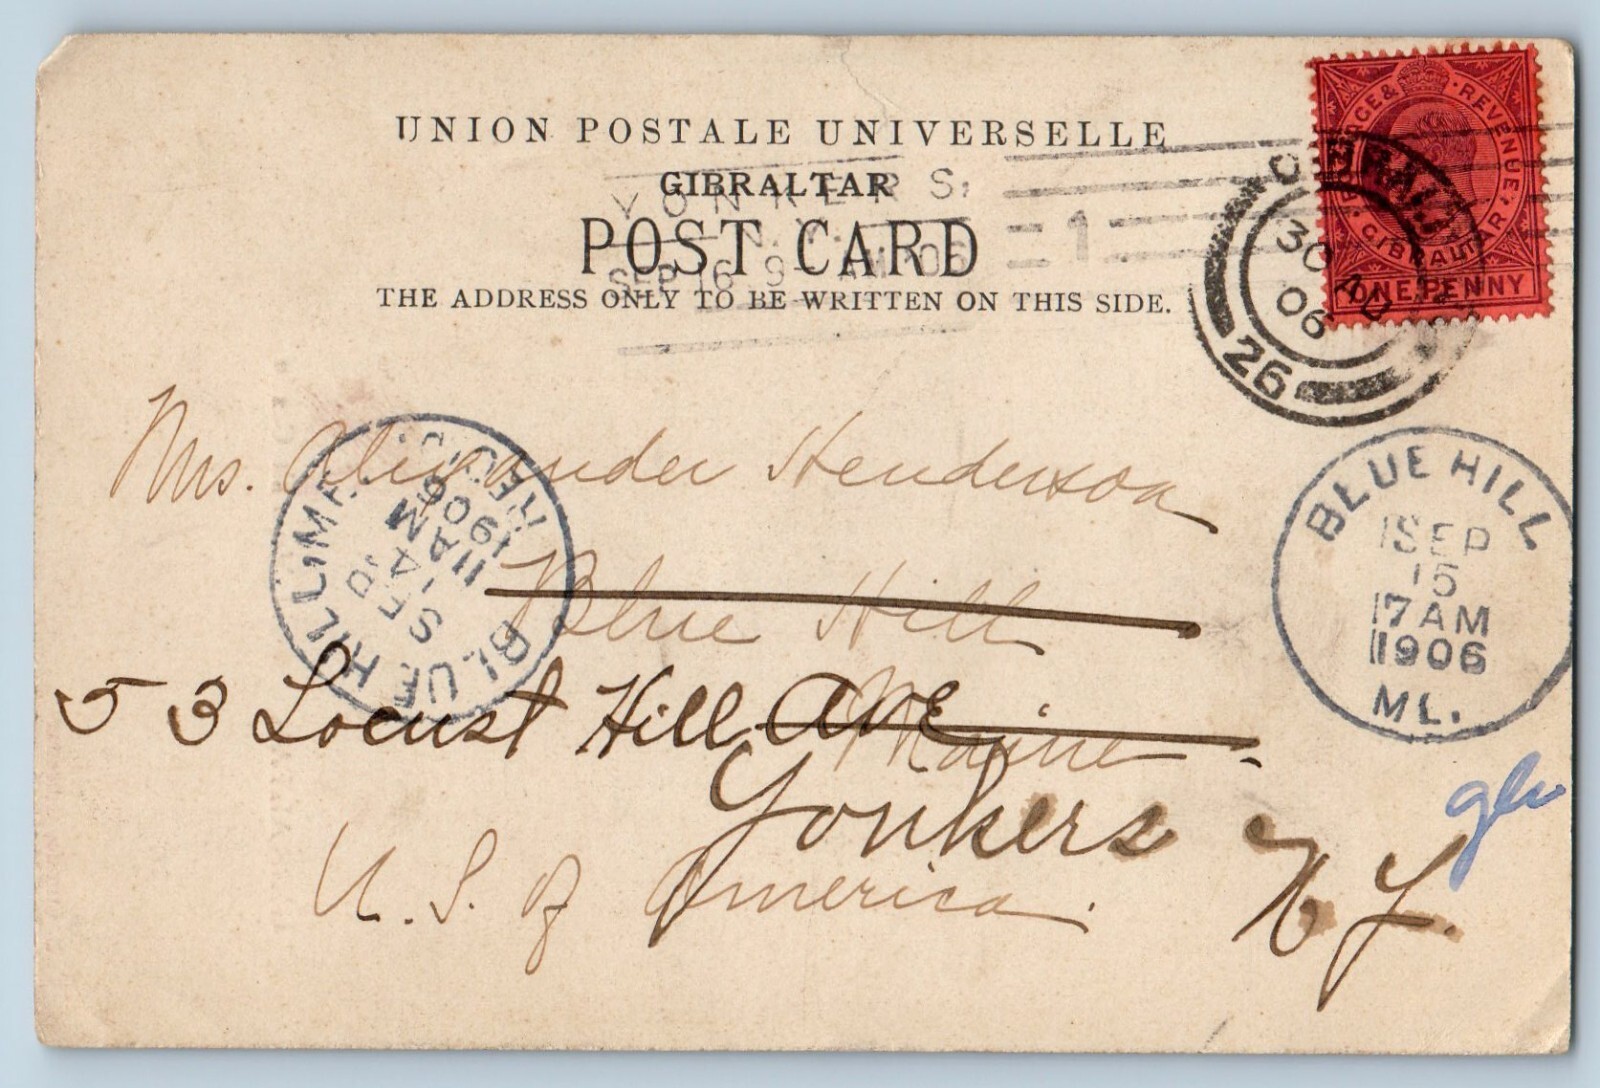 UNION POSTALE UNIVERSELLE
GIBRALTAR
POST CARD
THE ADDRESS ONLY TO BE WRITTEN ON THIS SIDE.
YONKERS,
N.Y.
SEP 16 9 - AM '06
1
POSTAGE & REVENUE
GIBRALTAR
ONE PENNY
GIBRALTAR
30 AU
06
26
Mrs. Alexander Henderson
BLUE HILL, ME.
SEP
14
11 AM
1906
REC'D.
BLUE HILL
SEP
15
7 AM
1906
ME.
Blue Hill
53 Locust Hill Ave
Maine
Yonkers
N Y.
U. S. of America.